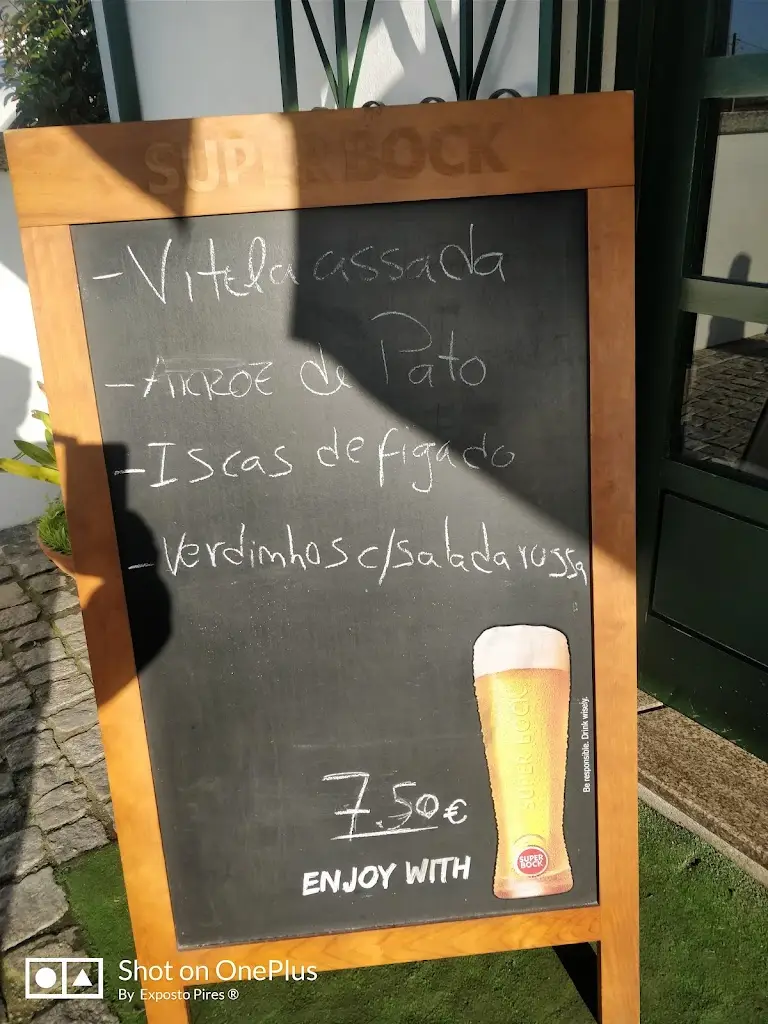 SUPER BOCK
- Vitela assada
- ARROZ de Pato
- Iscas de figado
- Verdinhos c/salada russa
SUPER BOCK
Be responsible. Drink wisely.
7.50€
SUPER BOCK
ENJOY WITH
Shot on OnePlus
By Exposto Pires ®